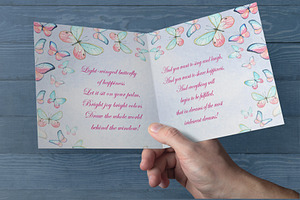 Light-winged butterfly
of happiness
Let it sit on your palm,
Bright joy bright colors
Draw the whole world
behind the window!
And you want to sing and laugh,
And you want to share happiness,
And everything will
begin to be fulfilled,
that in dreams of the week
iridescent dreams!